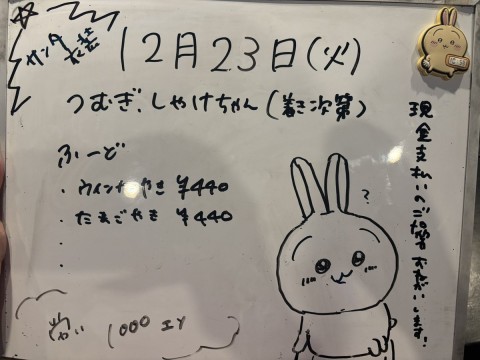 サンタ
衣装
12月23日(火)
つむぎ、しゃけちゃん(着き次第)
ふーど
・ウインナーやき ¥440
・たまごやき ¥440
・
・
現金支払いのご協力おねがいします!
?
1000エン